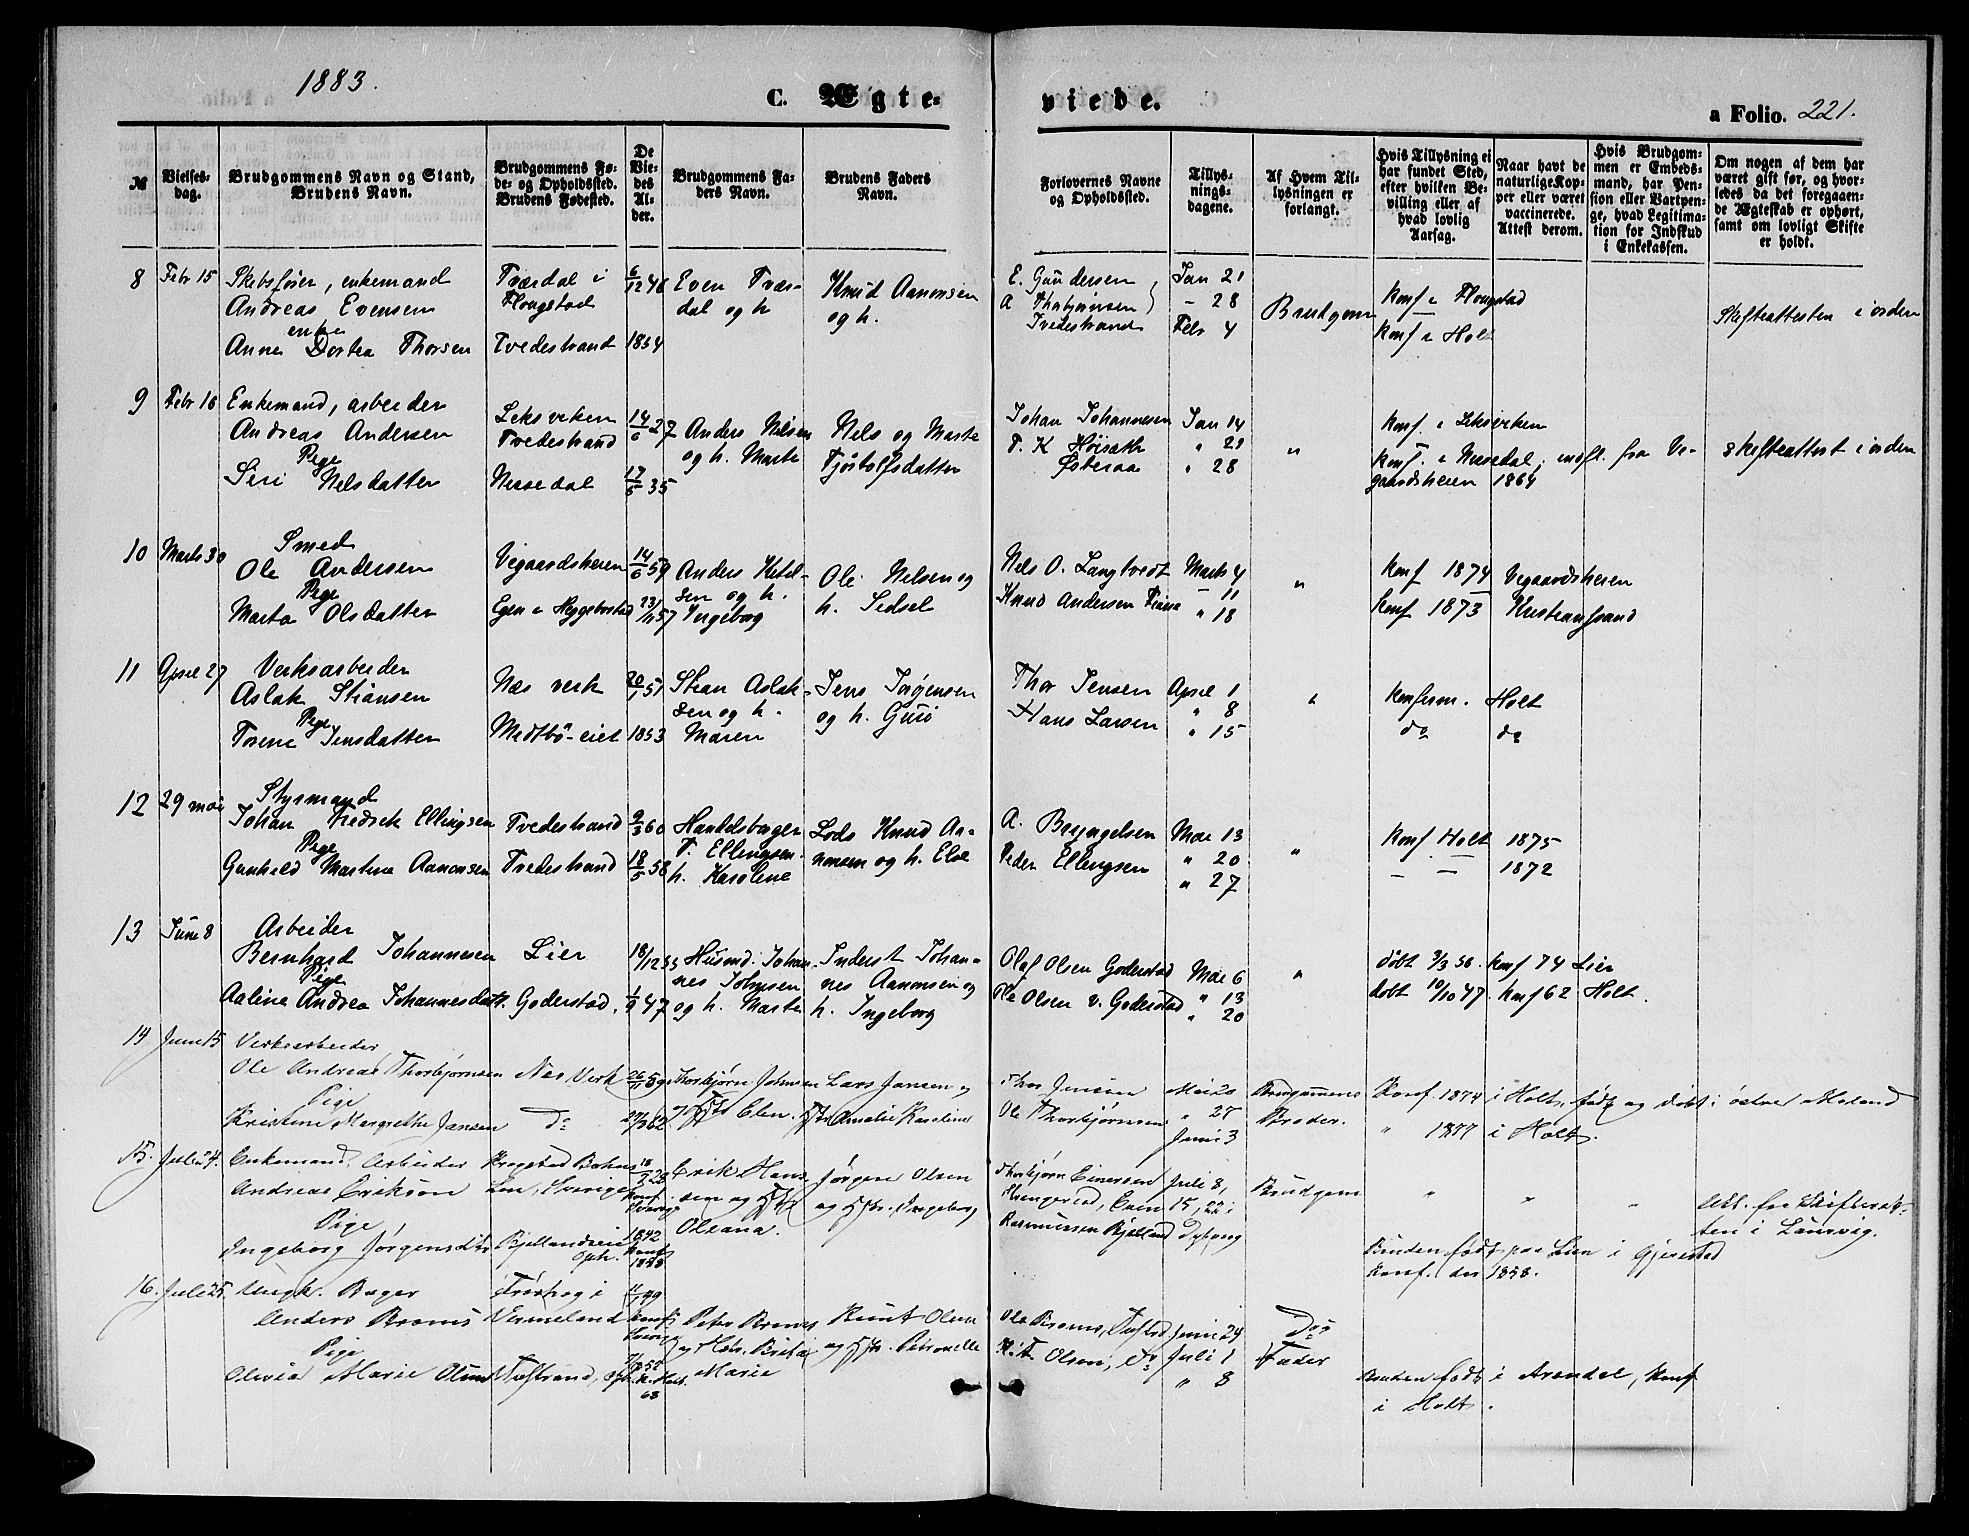 1883.
C. Ægte-
viede.
a Folio. 221.
№
Vielses-
dag.
Brudgommens Navn og Stand,
Brudens Navn.
Brudgommens Fø-
de- og Opholdssted.
Brudens Fødested.
De
Vie-
des
Al-
der.
Brudgommens Fa-
ders Navn.
Brudens Faders
Navn.
Forlovernes Navne
og Opholdssted.
Tillys-
nings-
dagene.
Af Hvem Til-
lysningen er
forlangt.
Hvis Tillysning ei
har fundet Sted,
efter hvilken Be-
villing eller af
hvad lovlig
Aarsag.
Naar havt de
naturlige Kop-
per eller været
vaccinerede.
Attest derom.
Hvis Brudgom-
men er Embeds-
mand, har Pen-
sion eller Vartpen-
ge, hvad Legitima-
tion for Indskud
i Enkekassen.
Om nogen af dem har
været gift før, og hvor-
ledes da det foregaaen-
de Ægteskab er ophørt,
samt om lovligt Skifte
er holdt.
8 Febr 15 Skibsfører, enkemand
Andreas Evensen
enke
Anne Dortea Thorsen
Tværdal i
Flougstad
Tvedestrand
6/12 46
1834
Even Tvær-
dal og h
Knud Aanonsen
og h.
E. Gundersen
A Thorbjørnsen
Tvedestrand
Jan 21
- 28
Febr 4
Brudgom
konf i Flougstad
konf i Holt
Skifteattesten i orden
9 Febr 16 Enkemand, arbeider
Andreas Andersen
Pige
Siri Nilsdatter
Leksviken
Tvedestrand
Nissedal
14/6 27
17/5 35
Anders Nilsen
og h. Marte
Nils og Marte
Fjøstolfsdatter
Johan Johannesen
T. K Høisæth
Østeraa
Jan 14
" 21
" 28
"
konf. i Leksviken
konf. i Nissedal, indfl. fra Ve-
gaardsheien 1864
skifteattest i orden
10 Marts 30 Smed
Ole Andersen
Pige
Marta Olsdatter
Vegaardsheien
Egen i Heggebostad
14/6 59
23/11 57
Anders Ketil-
sen og h.
Ingeborg
Ole Nilsen og
h. Sidsel
Nils O. Langtvedt
Knud Andersen
Marts 4
- 11
" 18
"
konf 1874 Vegaardsheien
konf 1873 Kristiansand
11 April 27 Verksarbeider
Aslak Stiansen
Pige
Torine Jensdatter
Næs verk
Midtbø-eiet
20/1 51
1853
Stian Aslak-
sen og h.
Maren
Jens Jørgensen
og h. Guro
Thor Jensen
Hans Larsen
April 1
" 8
" 15
"
konferm. Holt
do do
12 29 mai Styrmand
Johan Fredrik Ellingsen
Pige
Gunhild Martine Aanonsen
Tvedestrand
Tvedestrand
9/3 60
18/5 58
Handelsborger
T. Ellingsen.
h. Karoline
Lods Knud Aa-
nonsen og h. Else
A. Bryngelsen
Peder Ellingsen
Mai 13
" 20
" 27
"
konf Holt 1875
— — 1872
13 Juni 8 Arbeider
Bernhard Johannesen
Pige
Aaline Andrea Johannesdatt.
Lier
Goderstad.
18/12 55
1/9 47
Husmd. Johan-
nes Johnsen
og h. Marte
Inderst Johan-
nes Aanonsen og
h. Ingeborg
Olaf Olsen Goderstad
Ole Olsen v. Goderstad
Mai 6
" 13
" 20
"
døbt 3/3 56. konf 74 Lier
døbt 10/10 47. konf 62 Holt.
14 Juni 15 Verksarbeider
Ole Andreas Thorbjørnsen
Pige
Kristine Margrethe Jansen
Nes Verk
do
26/11 59
27/3 62
Thorbjørn Johnsen
og Hstr Elen.
Lars Jansen og
Hstr Amalie Karoline
Thor Jensen
Ole Thorbjørnsen
Mai 20
" 27
Juni 3
Brudgommens
Broder.
Konf. 1874 i Holt, født og døbt i østre Moland
" 1877 i Holt.
15. Juli 24. Enkemand. Arbeider
Andreas Erikson
Pige
Ingeborg Jørgensdtr
Krogstad Bohus
Len, Sverige
Bjellandseie
Oph.
Konf.
Sverige
1842
Konf
1858
Erik Hans-
sen og Hstr
Oleana.
Jørgen Olsen
og Hstr. Ingeborg
Thorbjørn Einersen
Even
Rasmussen Bjelland
Juli 8,
15, 22 i
Dybvag
Brudgom
" " "
Bruden født paa Lien i Gjerestad
konf. der 1858.
Att. fra Skifteret-
ten i Laurvig.
16. Juli 25. Ungk. Bager
Anders Broms
Pige
Olivia Marie Olsen
i
Vermeland
11/1 49
konf i
Sverige
68
Peter Broms
og Hstr. Brita
Marie
Knut Olsen
og Hstr. Petronelle
Ole Broms,
Olsen, do
Juni 24
Juli 1
" 8
Ds
Fader
Bruden født i Arendal, konf
i Holt.